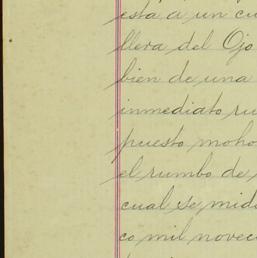 esta a un cu
llera del Ojo
bien de una
inmediato ru
puesto moho
el rumbo de
cual se mid
co mil novec